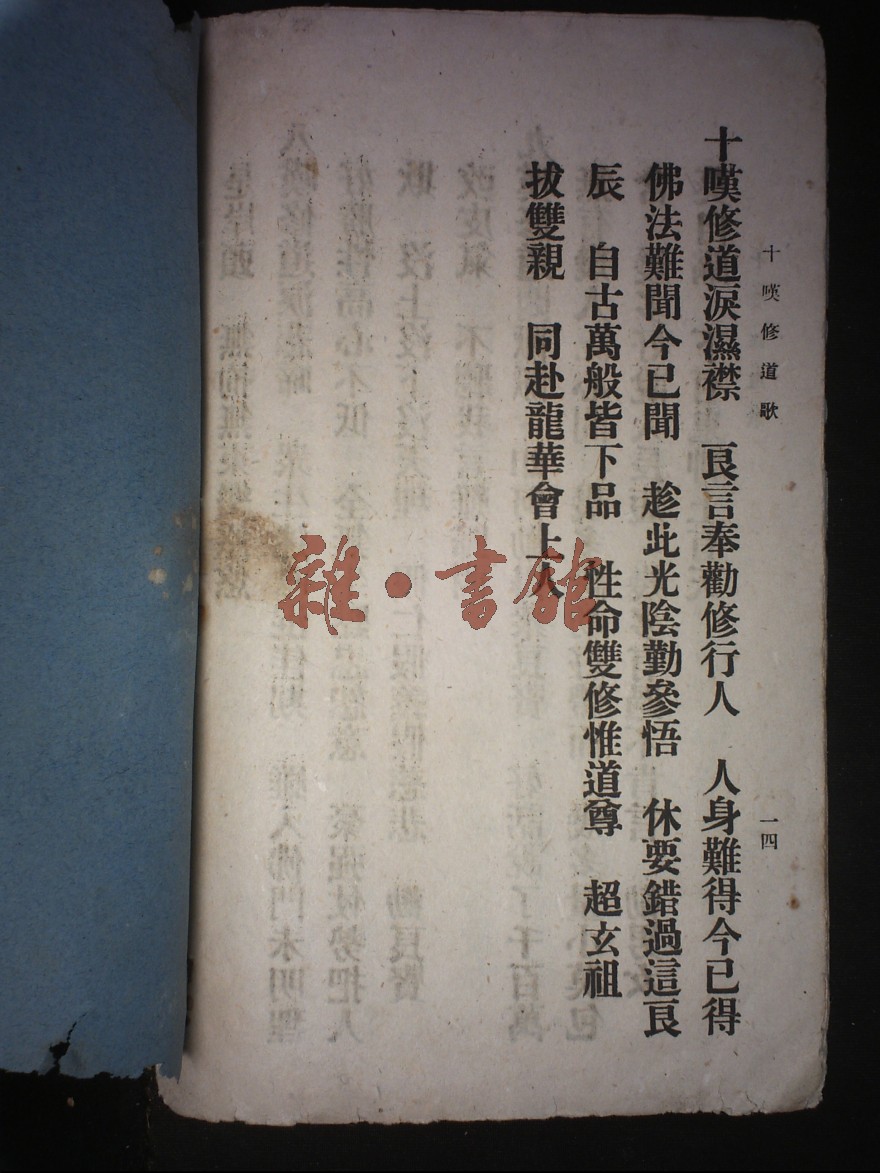 十嘆修道歌 一四
十嘆修道淚濕襟 良言奉勸修行人 人身難得今已得
佛法難聞今已聞 趁此光陰勤參悟 休要錯過這良
辰 自古萬般皆下品 性命雙修惟道尊 超玄祖
拔雙親 同赴龍華會上人
雜·書館